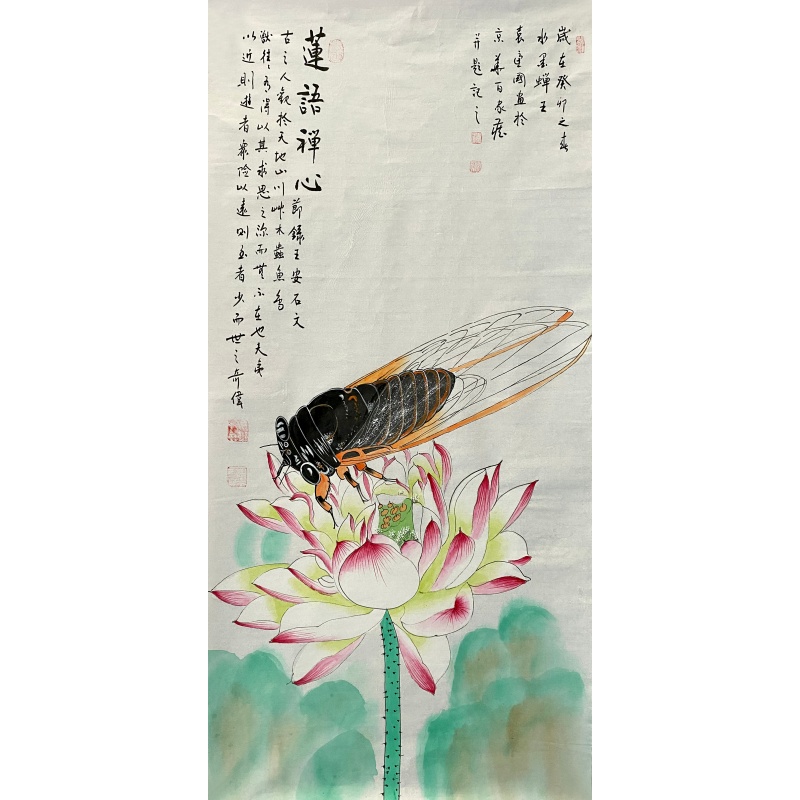 歲在癸卯之春
水墨蟬王
袁國畫於
京華百家
并題記之
蓮語禪心
節錄王安石文
古之人觀於天地山川艸木蟲魚鳥
獸往往有得以其求思之深而無不在也夫夷
以近則遊者眾險以遠則至者少而世之奇偉